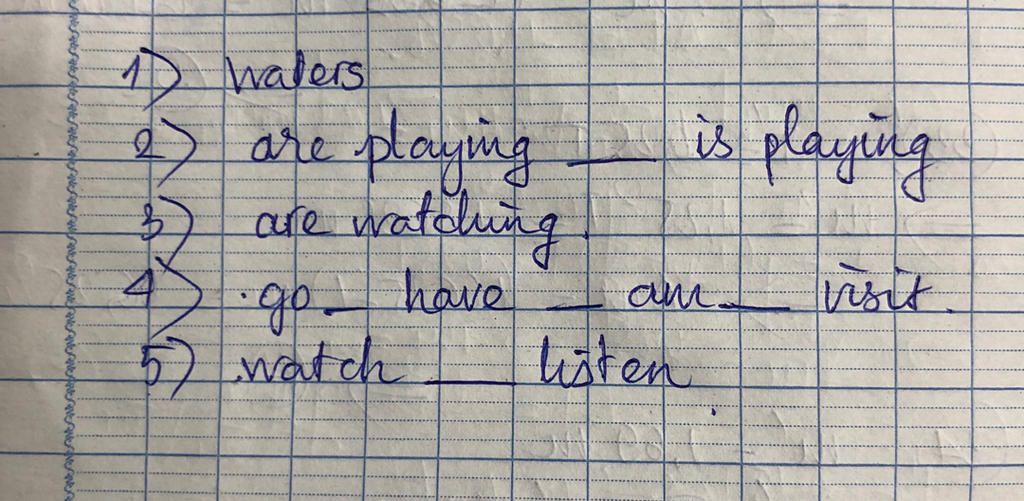 1) waters
2) are playing __ is playing
3) are watching.
4) .go _ have _ am _ visit.
5) .watch __ listen.